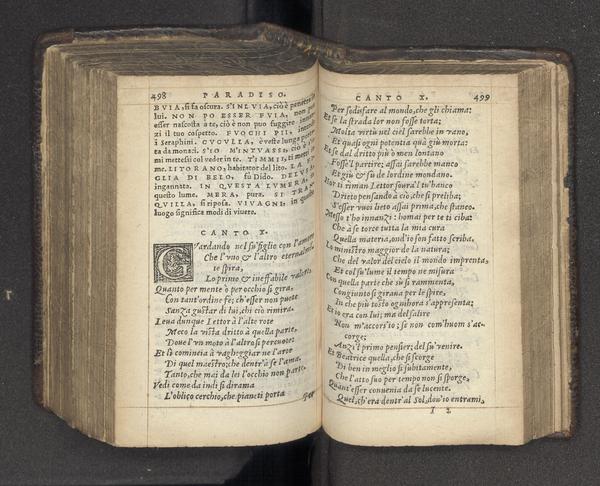 498 PARADISO.
BVIA, si fa oscura. S'INLVIA, ciò è penetra in
lui. NON PO ESSER FVIA, non può
esser nascosta à te, ciò è non puo fuggire innan
zi il tuo cospetto. FVOCHI PII,
i Seraphini. CVCVLLA, è veste lunga
ta da monaci. S'IO M'INTVASSI, ciò è s'io
mi mettessi col veder in te. T'IMMII, ti metti in
me. LITORANO, habitator del lito. LA FI
GLIA DI BELO, fù Dido. DELVSA,
ingannata. IN QVESTA LVMERA, in
questo lume. MERA, pura. SI TRAN
QVILLA, si riposa. VIVAGNI, in questo
luogo significa modi di viuere.
CANTO X.
GVardando nel su' figlio con l'amore
Che l'vno & l'altro eternalmente
spira,
Lo primo & ineffabile valore,
Quanto per mente ò per occhio si gira,
Con tant'ordine fe; ch'esser non puote
Sanza gustar di lui, chi ciò rimira.
Leua dunque Lettor à l'alte rote
Meco la vista dritto à quella parte,
Doue l'vn moto à l'altro si percuote:
Et lì comincia à vagheggiar ne l'arte
Di quel maestro; che dentr'à se l'ama
Tanto, che mai da lei l'occhio non parte.
Vedi come da indi si dirama
L'obliquo cerchio, che pianeti porta
Per
CANTO X. 499
Per sodisfare al mondo, che gli chiama:
Et se la strada lor non fosse torta;
Molta virtù nel ciel sarebbe in vano,
Et quasi ogni potentia quà giù morta:
Et se dal dritto più ò men lontano
Fosse'l partire; assai sarebbe manco
Et giù & sù de l'ordine mondano.
Hor ti riman Lettor soura'l tu' banco
Drieto pensando à ciò, che si preliba;
S'esser vuoi lieto assai prima, che stanco.
Messo t'ho innanzi: homai per te ti ciba:
Che à se torce tutta la mia cura
Quella materia, ond'io son fatto scriba.
Lo ministro maggior de la natura;
Che del valor del cielo il mondo imprenta,
Et col su' lume il tempo ne misura
Con quella parte che sù si rammenta,
Congiunto si giraua per le spire,
In che più tosto ogn'hora s'appresenta;
Et io era con lui; ma del salire
Non m'accors'io; se non com'huom s'ac-
corge;
Anzi'l primo pensier; del su' venire.
Et Beatrice quella, che si scorge
Di ben in meglio si subitamente,
Che l'atto suo per tempo non si sporge,
Quant'esser conuenia da se lucente.
Quel, ch'era dentr'al Sol, dou'io entrami,
I 2